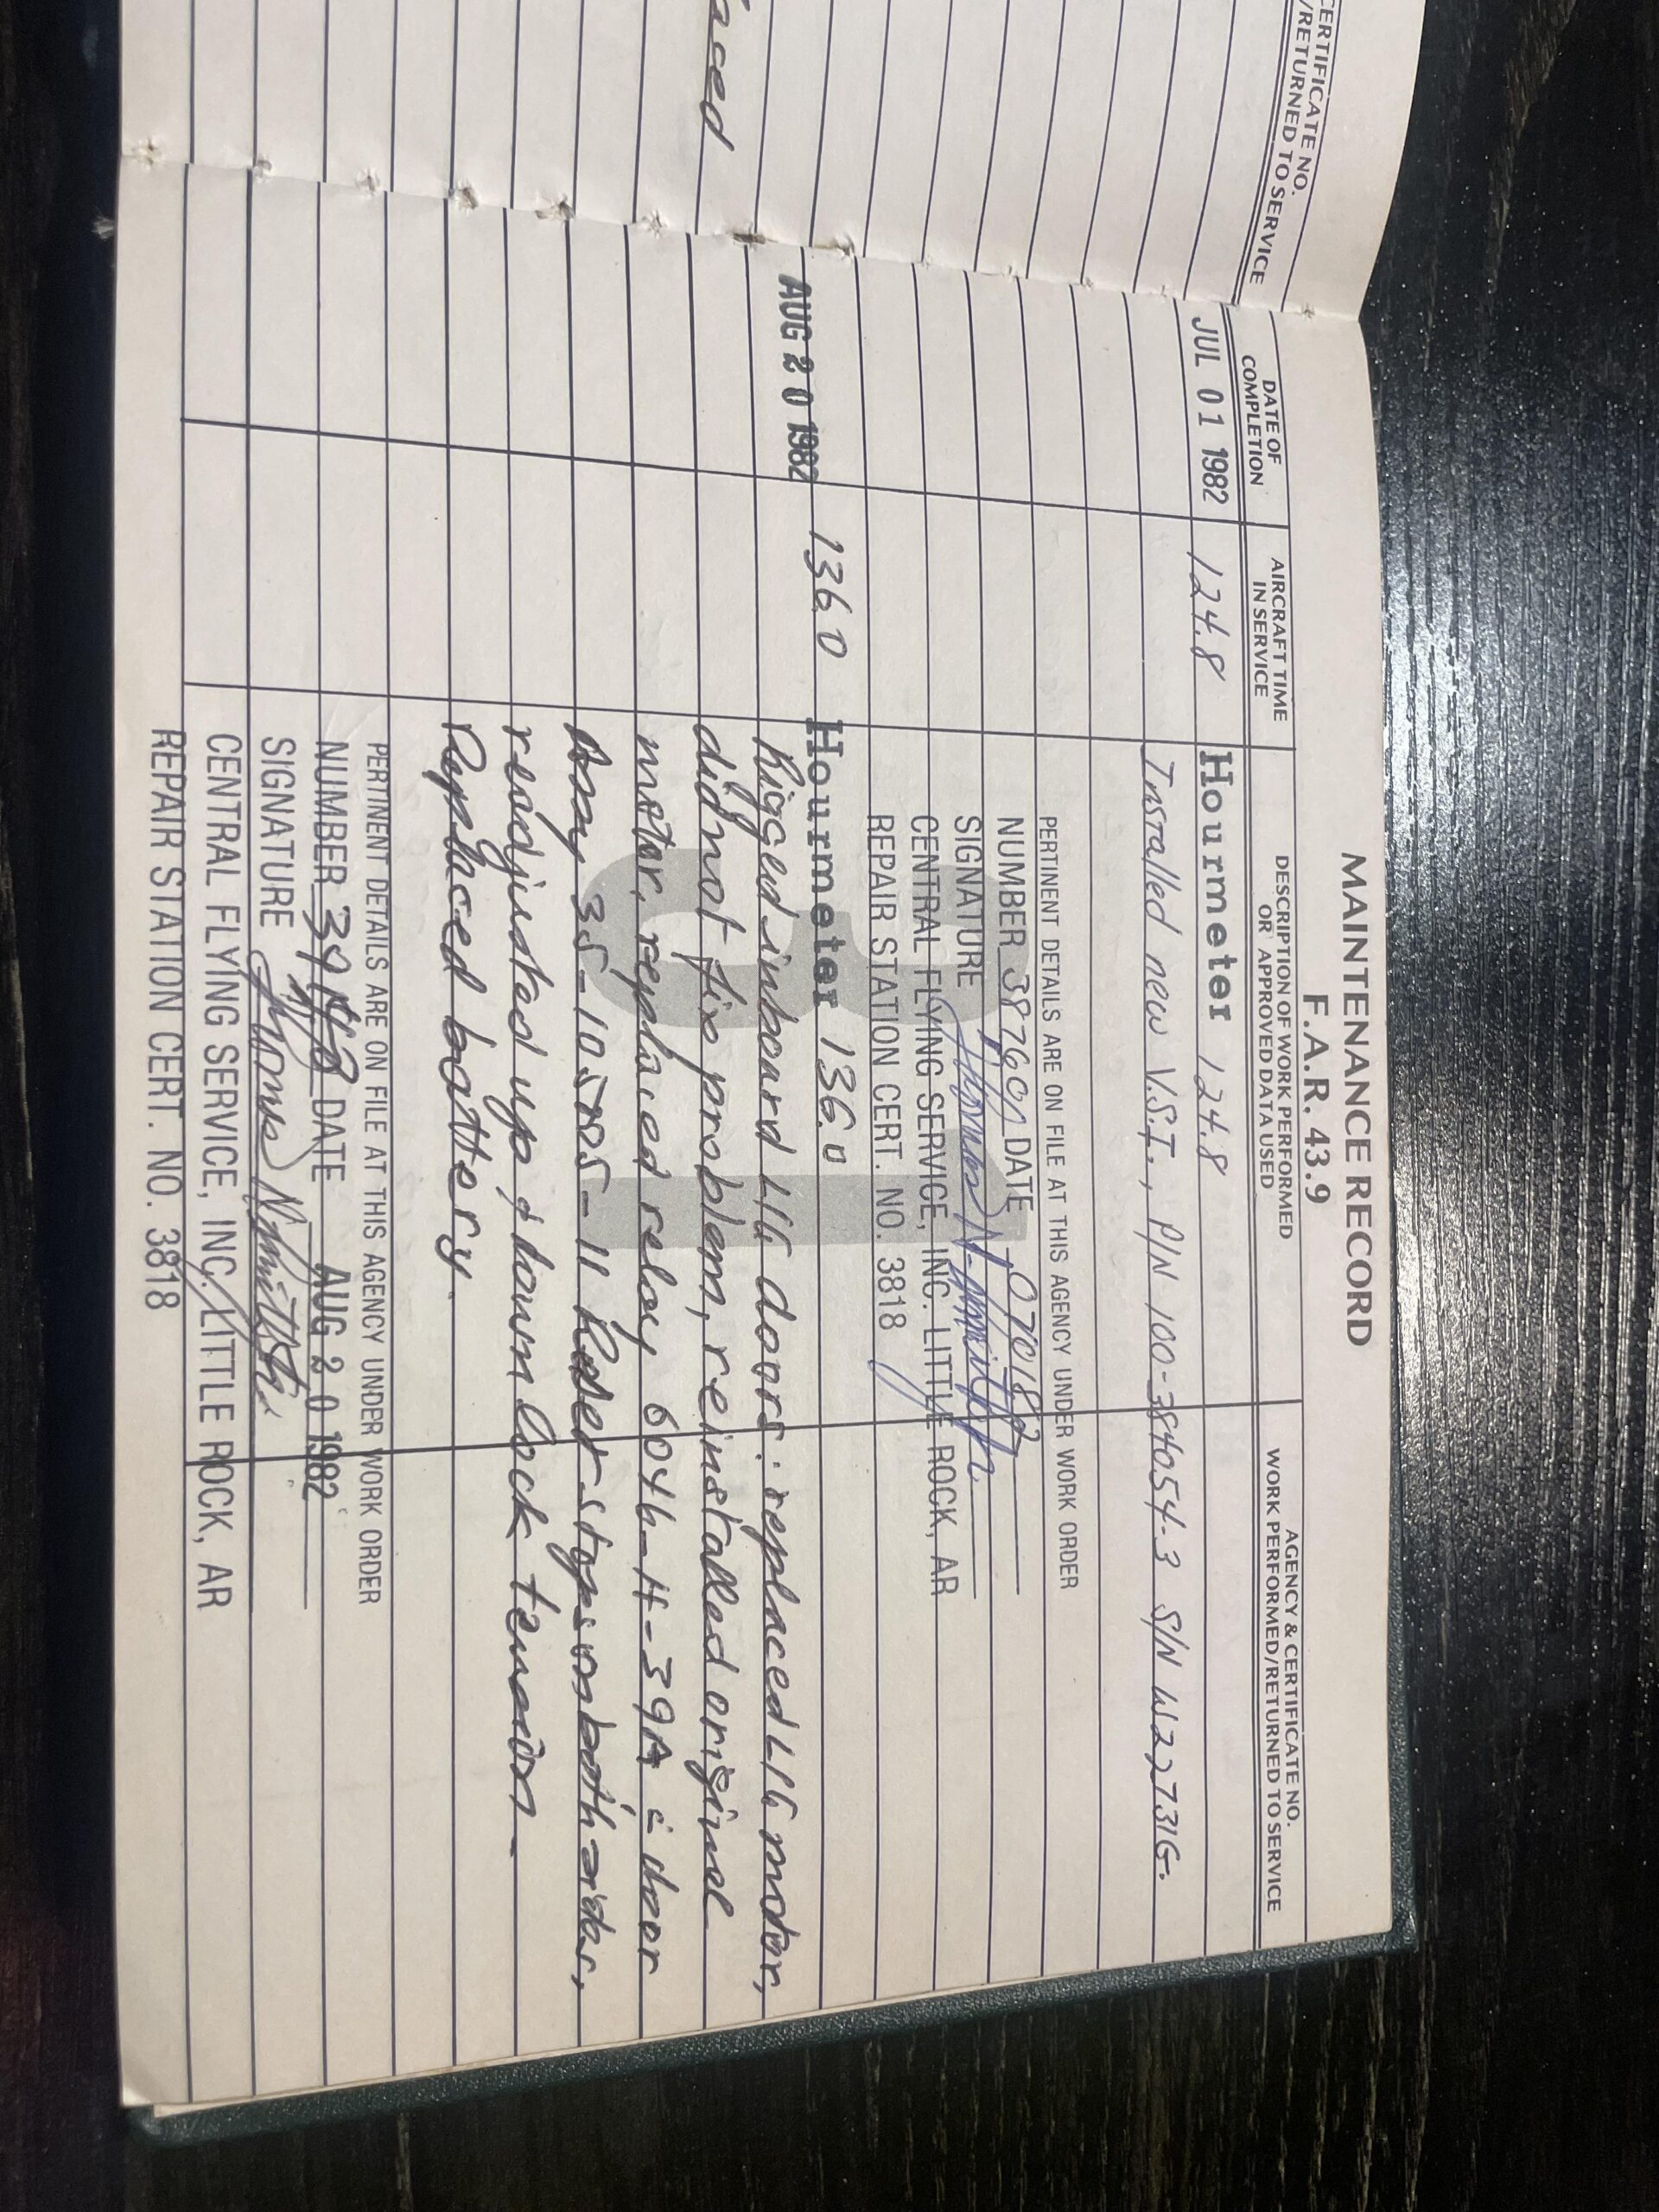 aced
CERTIFICATE NO.
/RETURNED TO SERVICE
MAINTENANCE RECORD
F.A.R. 43.9
DATE OF COMPLETION
AIRCRAFT TIME IN SERVICE
DESCRIPTION OF WORK PERFORMED OR APPROVED DATA USED
AGENCY & CERTIFICATE NO. WORK PERFORMED/RETURNED TO SERVICE
JUL 01 1982 124.8 Hourmeter 124.8
Installed new V.S.I., P/N 100-384054-3 S/N W22731G.
PERTINENT DETAILS ARE ON FILE AT THIS AGENCY UNDER WORK ORDER
NUMBER DATE 070182
SIGNATURE
CENTRAL FLYING SERVICE, INC. LITTLE ROCK, AR
REPAIR STATION CERT. NO. 3818
AUG 20 1982 136.0 Hourmeter 136.0
Rigged inboard L/G doors: replaced L/G motor,
did not fix problem, reinstalled original
motor, replaced relay 6046-H-39A & door
Assy 35-105 -11 Reset stops on both sides,
readjusted up & down lock tension
Replaced battery.
PERTINENT DETAILS ARE ON FILE AT THIS AGENCY UNDER WORK ORDER
NUMBER DATE AUG 20 1982
SIGNATURE
CENTRAL FLYING SERVICE, INC. LITTLE ROCK, AR
REPAIR STATION CERT. NO. 3818